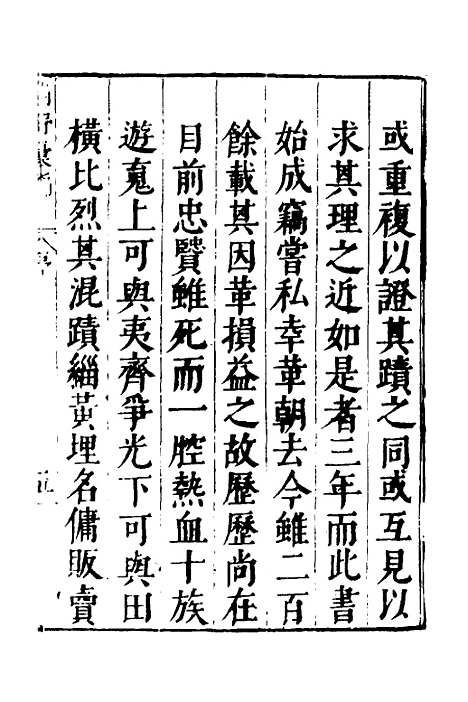 或重複以證其蹟之同或互見以
求其理之近如是者三年而此書
始成竊嘗私幸革朝去今雖二百
餘載其因革損益之故歷歷尚在
目前忠賢雖死而一腔熱血十族
遊魂上可與夷齊爭光下可與田
橫比烈其混蹟緇黃埋名傭販賣
序
五